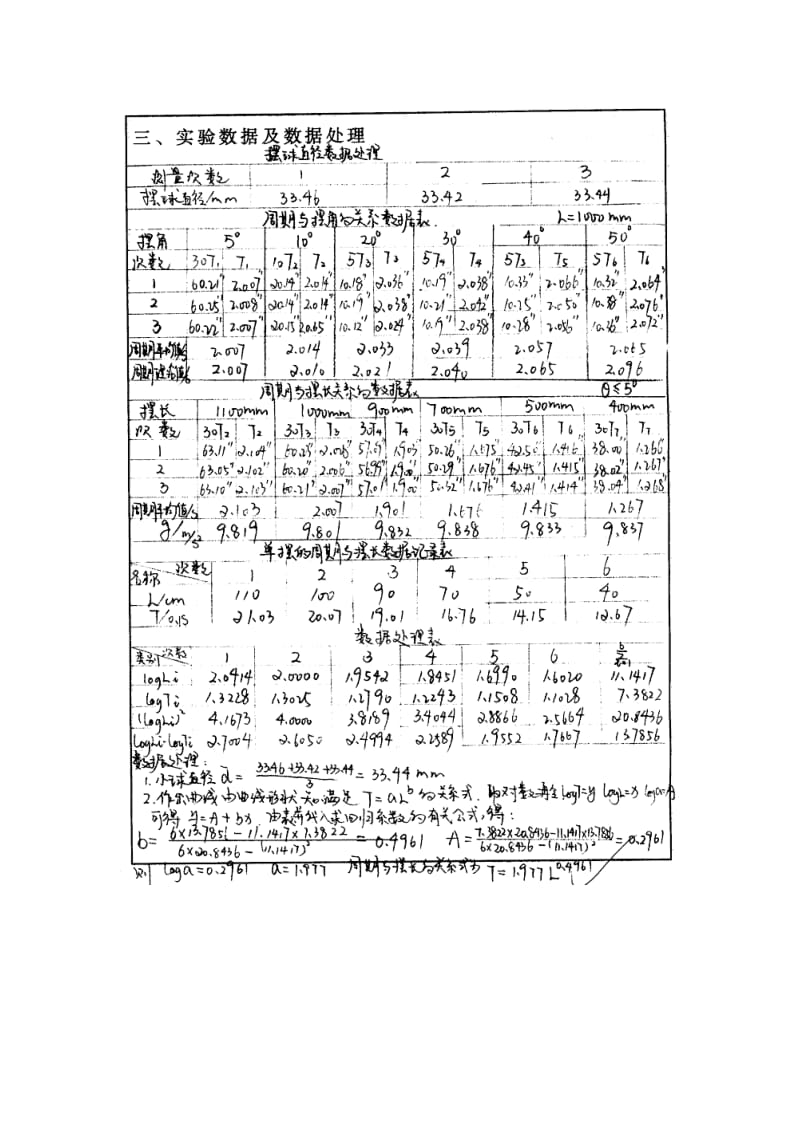 三、实验数据及数据处理
摆球直径数据处理
测量次数 1 2 3
摆球直径/mm 33.46 33.42 33.44
周期与摆角的关系数据表 L=1000mm
摆角 5° 10° 20° 30° 40° 50°
次数 30T₁ T₁ 10T₂ T₂ 5T₃ T₃ 5T₄ T₄ 5T₅ T₅ 5T₆ T₆
1 60.21" 2.007" 20.14" 2.014" 10.18" 2.036" 10.19" 2.038" 10.33" 2.066" 10.32" 2.064"
2 60.25" 2.008" 20.14" 2.014" 10.19" 2.038" 10.21" 2.042" 10.25" 2.050" 10.38" 2.076"
3 60.22" 2.007" 20.15" 10.12" 2.024" 10.19" 2.038" 10.28" 2.056" 10.36" 2.072"
周期平均值/s 2.007 2.014 2.033 2.039 2.057 2.065
周期理论值/s 2.007 2.010 2.021 2.040 2.065 2.096
周期与摆长关系的数据表 θ≤5°
摆长 1100mm 1000mm 900mm 700mm 500mm 400mm
次数 30T₂ T₂ 30T₃ T₃ 30T₄ T₄ 30T₅ T₅ 30T₆ T₆ 30T₇ T₇
1 63.11" 2.104" 60.23" 2.008" 57.09" 1.903" 50.26" 1.675" 42.50" 1.416" 38.00" 1.266"
2 63.05" 2.102" 60.20" 2.006" 56.99" 1.900" 50.29" 1.676" 42.45" 1.415" 38.02" 1.267"
3 63.10" 2.103" 60.21" 2.007" 57.01" 1.900" 50.32" 1.676" 42.41" 1.414" 38.04" 1.268"
周期平均值/s 2.103 2.007 1.901 1.676 1.415 1.267
g/m/s² 9.819 9.801 9.832 9.838 9.833 9.837
单摆的周期与摆长数据记录表
名称 次数 1 2 3 4 5 6
L/cm 110 100 90 70 50 40
T/0.1s 21.03 20.07 19.01 16.76 14.15 12.67
数据处理表
类别 次数 1 2 3 4 5 6
logLi 2.0414 2.0000 1.9542 1.8451 1.6990 1.6020 11.1417
logTi 1.3228 1.3025 1.2790 1.2243 1.1508 1.1028 7.3822
(logLi)² 4.1673 4.0000 3.8189 3.4044 2.8866 2.5664 20.8436
logLi·logTi 2.7004 2.6050 2.4994 2.2589 1.9552 1.7667 13.7856
数据处理:
1. 小球直径 d̄ = (33.46+33.42+33.44)/3 = 33.44 mm
2. 作出曲线,由曲线形状知满足 T=aLᵇ 的关系式, 取对数再令 logT=y logL=x loga=A
可得 y=A+bx, 由表前代入求回归系数的有关公式,得:
b= (6×13.7856−11.1417×7.3822)/(6×20.8436−(11.1417)²) =0.4961 A= (7.3822×20.8436−11.1417×13.7856)/(6×20.8436−(11.1417)²) =0.2961
则 loga=0.2961 a=1.977 周期与摆长的关系式为 T=1.977L^0.4961